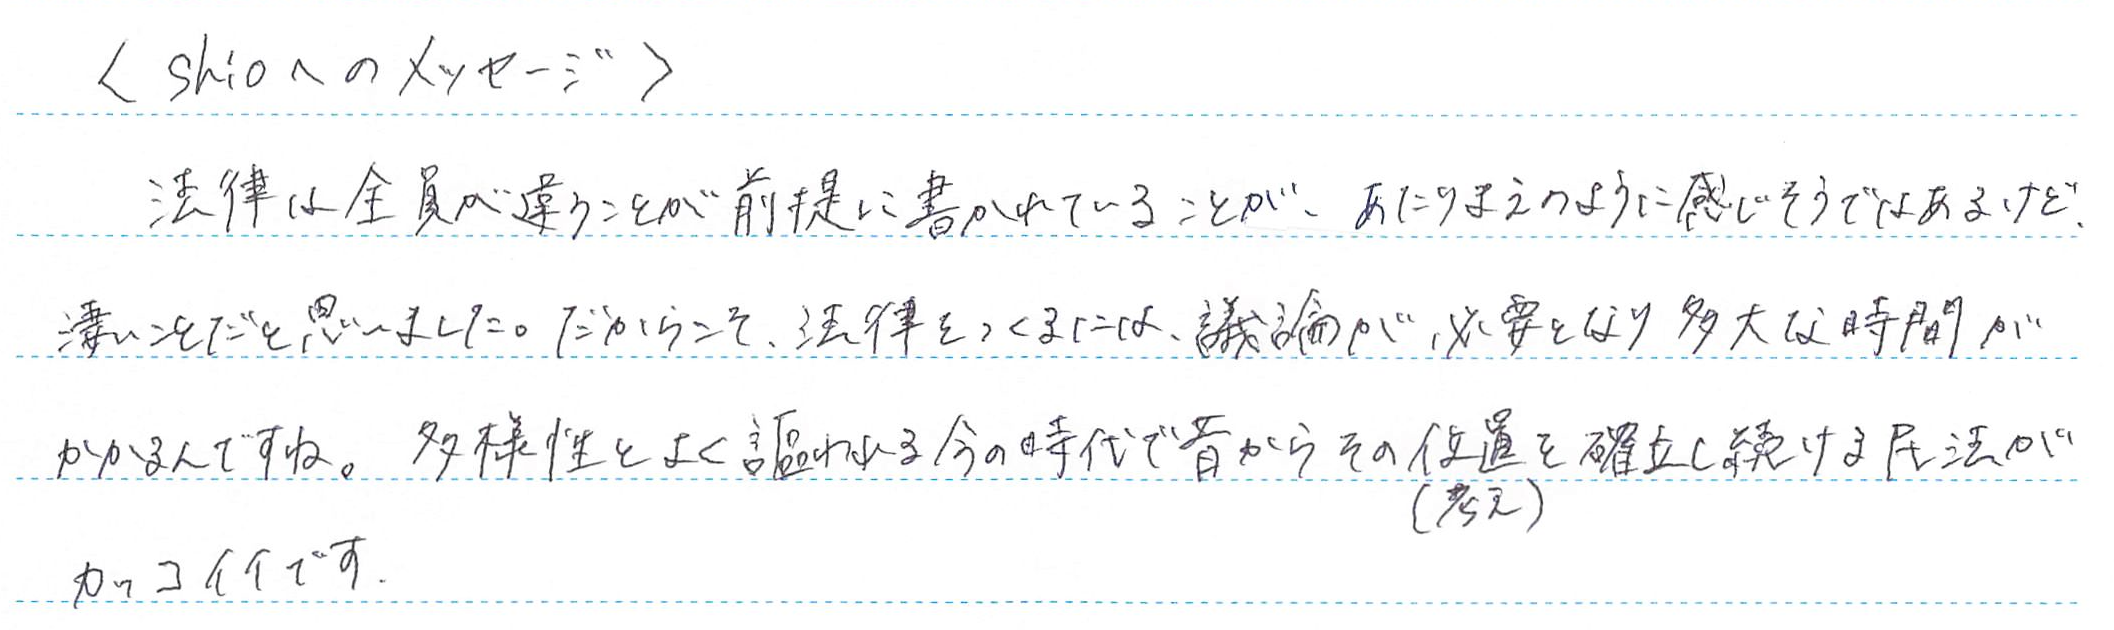 〈shioへのメッセージ〉
法律は全員が違うことが前提に書かれていることが、あたりまえのように感じそうではあるけど、
凄いことだと思いました。だからこそ、法律をつくるには、議論が必要となり多大な時間が
かかるんですね。多様性とよく謳われる今の時代で昔からその位置を確立し続ける民法が
(考え)
カッコイイです.